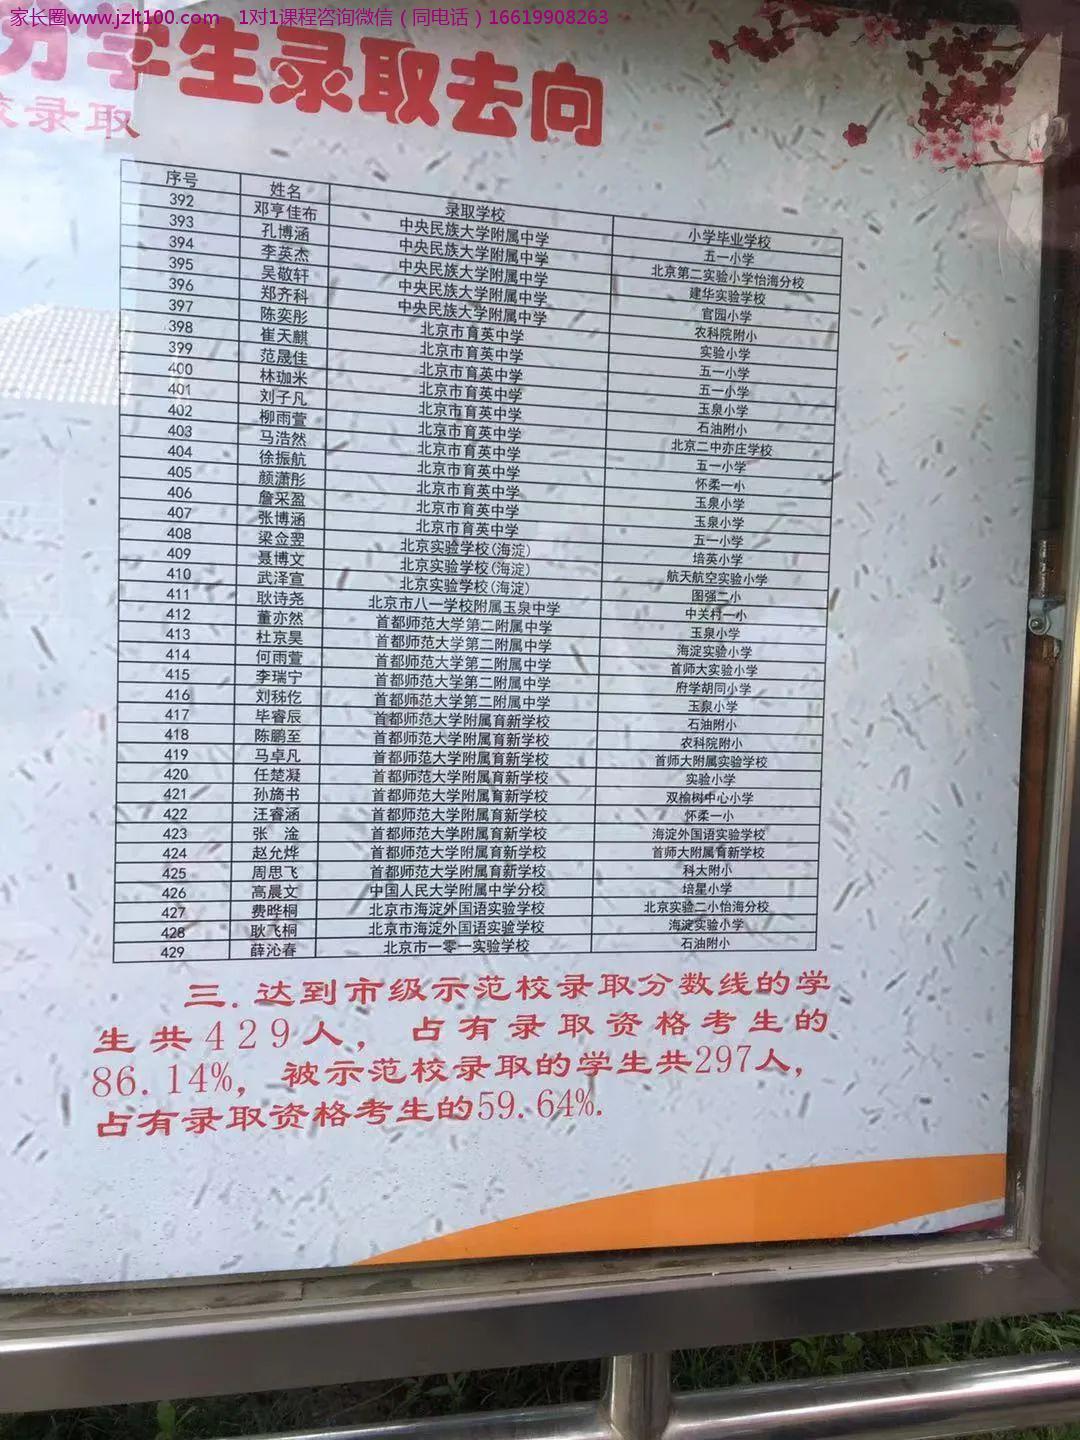 家长圈www.jzlt100.com 1对1课程咨询微信（同电话）16619908263
分学生录取去向
校录取
序号 姓名 录取学校 小学毕业学校
392 邓亨佳布 中央民族大学附属中学 五一小学
393 孔博涵 中央民族大学附属中学 北京第二实验小学怡海分校
394 李英杰 中央民族大学附属中学 建华实验学校
395 吴敬轩 中央民族大学附属中学 官园小学
396 郑齐科 中央民族大学附属中学 农科院附小
397 陈奕彤 北京市育英中学 实验小学
398 崔天麒 北京市育英中学 五一小学
399 范晟佳 北京市育英中学 五一小学
400 林珈米 北京市育英中学 玉泉小学
401 刘子凡 北京市育英中学 石油附小
402 柳雨萱 北京市育英中学 北京二中亦庄学校
403 马浩然 北京市育英中学 五一小学
404 徐振航 北京市育英中学 怀柔一小
405 颜潇彤 北京市育英中学 玉泉小学
406 詹采盈 北京市育英中学 玉泉小学
407 张博涵 北京市育英中学 五一小学
408 梁佥翌 北京实验学校(海淀) 培英小学
409 聂博文 北京实验学校(海淀) 航天航空实验小学
410 武泽宣 北京实验学校(海淀) 图强二小
411 耿诗尧 北京市八一学校附属玉泉中学 中关村一小
412 董亦然 首都师范大学第二附属中学 玉泉小学
413 杜京昊 首都师范大学第二附属中学 海淀实验小学
414 何雨萱 首都师范大学第二附属中学 首师大实验小学
415 李瑞宁 首都师范大学第二附属中学 府学胡同小学
416 刘秭仡 首都师范大学第二附属中学 玉泉小学
417 毕睿辰 首都师范大学附属育新学校 石油附小
418 陈鹏至 首都师范大学附属育新学校 农科院附小
419 马卓凡 首都师范大学附属育新学校 首师大附属实验学校
420 任楚凝 首都师范大学附属育新学校 实验小学
421 孙旖书 首都师范大学附属育新学校 双榆树中心小学
422 汪睿涵 首都师范大学附属育新学校 怀柔一小
423 张 淦 首都师范大学附属育新学校 海淀外国语实验学校
424 赵允烨 首都师范大学附属育新学校 首师大附属育新学校
425 周思飞 首都师范大学附属育新学校 科大附小
426 高晨文 中国人民大学附属中学分校 培星小学
427 费晔桐 北京市海淀外国语实验学校 北京实验二小怡海分校
428 耿飞桐 北京市海淀外国语实验学校 海淀实验小学
429 薛沁春 北京市一零一实验学校 石油附小
三.达到市级示范校录取分数线的学
生共429人，占有录取资格考生的
86.14%，被示范校录取的学生共297人，
占有录取资格考生的59.64%.